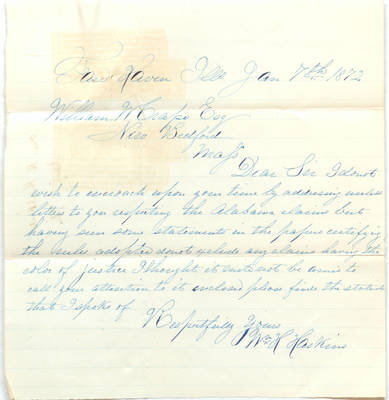 Fair Haven Feb Jan 7th 1872
William W Crapo Esq
New Bedford
Mass
Dear Sir I do not
wish to encroach upon your time by addressing
letters to you respecting the Alabama claims but
having seen some statements in the papers certifying
the rules adopted do not exclude any claims having the
color of justice I thought it would not be amiss to
call your attention to it enclosed please find the
that I spoke of
Respectfully Yours
Wm H Haskins